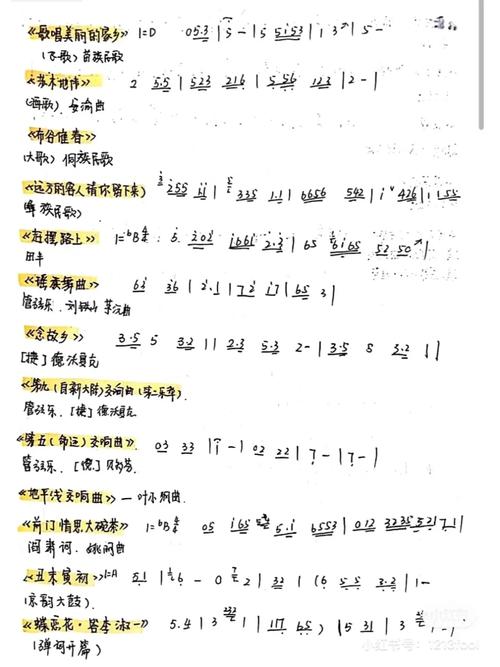 《歌唱美丽的家乡》 1=D 05.3 | i 5 - | 5 5i53 | 1 3 ↗ | 5 -
(飞歌) 苗族民歌
《苏木地伟》 2 5.5 | 523 216 | 5 56 123 | 2 - |
曲
《布谷催春》
(大歌) 侗族民歌
《远方的客人请你留下来》 255 ii | 335 1.1 | 6656 542 | i 426 |
族民歌)
《赶摆路上》 1=bB 5. 202 i66i 2.3 | 65 6i65 52 50 ↗ |
田丰
《瑶族舞曲》 63 36 | 2.1 | 72 17 | 65 3 |
管弦乐. 刘铁山 茅沅曲
《念故乡》 3.5 5 3.2 1 | 2.3 5.3 2 - | 3.5 5 3.2 1 |
[捷] 德沃夏克
《第九(自新大陆)交响曲(第二乐章)
管弦乐. [捷] 德沃夏克
《第五(命运)交响曲》. 03 33 | i - | 02 22 | 7 - | 7 - |
管弦乐. [德] 贝多芬
《地平线交响曲》 — 叶小纲曲.
《前门情思大碗茶》 1=bB 05 i65 5.i 6553 | 012 3235 527.1 |
阎肃词. 姚明曲
《丑末寅初》 1=A 5.1 | 6 - 0 2 | 32 1 (6 5 5 3.2 | 1 -
(京韵大鼓).
《蝶恋花·答李淑一》 5.4 | 3 | 1 17 65 ) | 5 31 | 3 1 - |
(弹词开篇)
小红书
小红书号: 1213fool